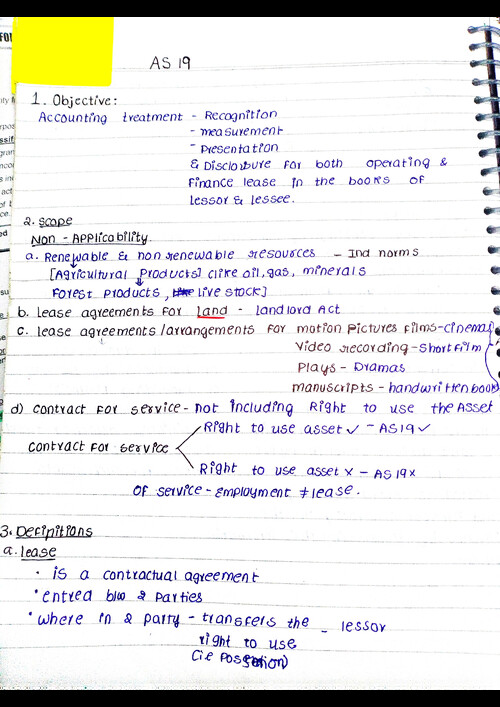 AS 19
1. Objective:
Accounting treatment - Recognition
- measurement
- Presentation
& Disclosure for both operating &
Finance lease in the books of
lessor & lessee.
2. scope
Non - Applicability
a. Renewable & non renewable resources - Ind norms
[Agricultural Products] (like oil, gas, minerals
Forest products, live stock]
b. lease agreements for land - landlord Act
c. lease agreements /arrangements for motion pictures films - cinema
Video recording - Short film
Plays - Dramas
manuscripts - handwritten book
d) contract for service - not including Right to use the Asset
Right to use asset ✓ - AS19 ✓
contract for service
Right to use asset x - AS19x
OF service - employment ≠ lease.
3. Definitions
a. lease
· is a contractual agreement
· entred b/w 2 parties
· where in 2 party - transfers the - lessor
right to use
(i.e